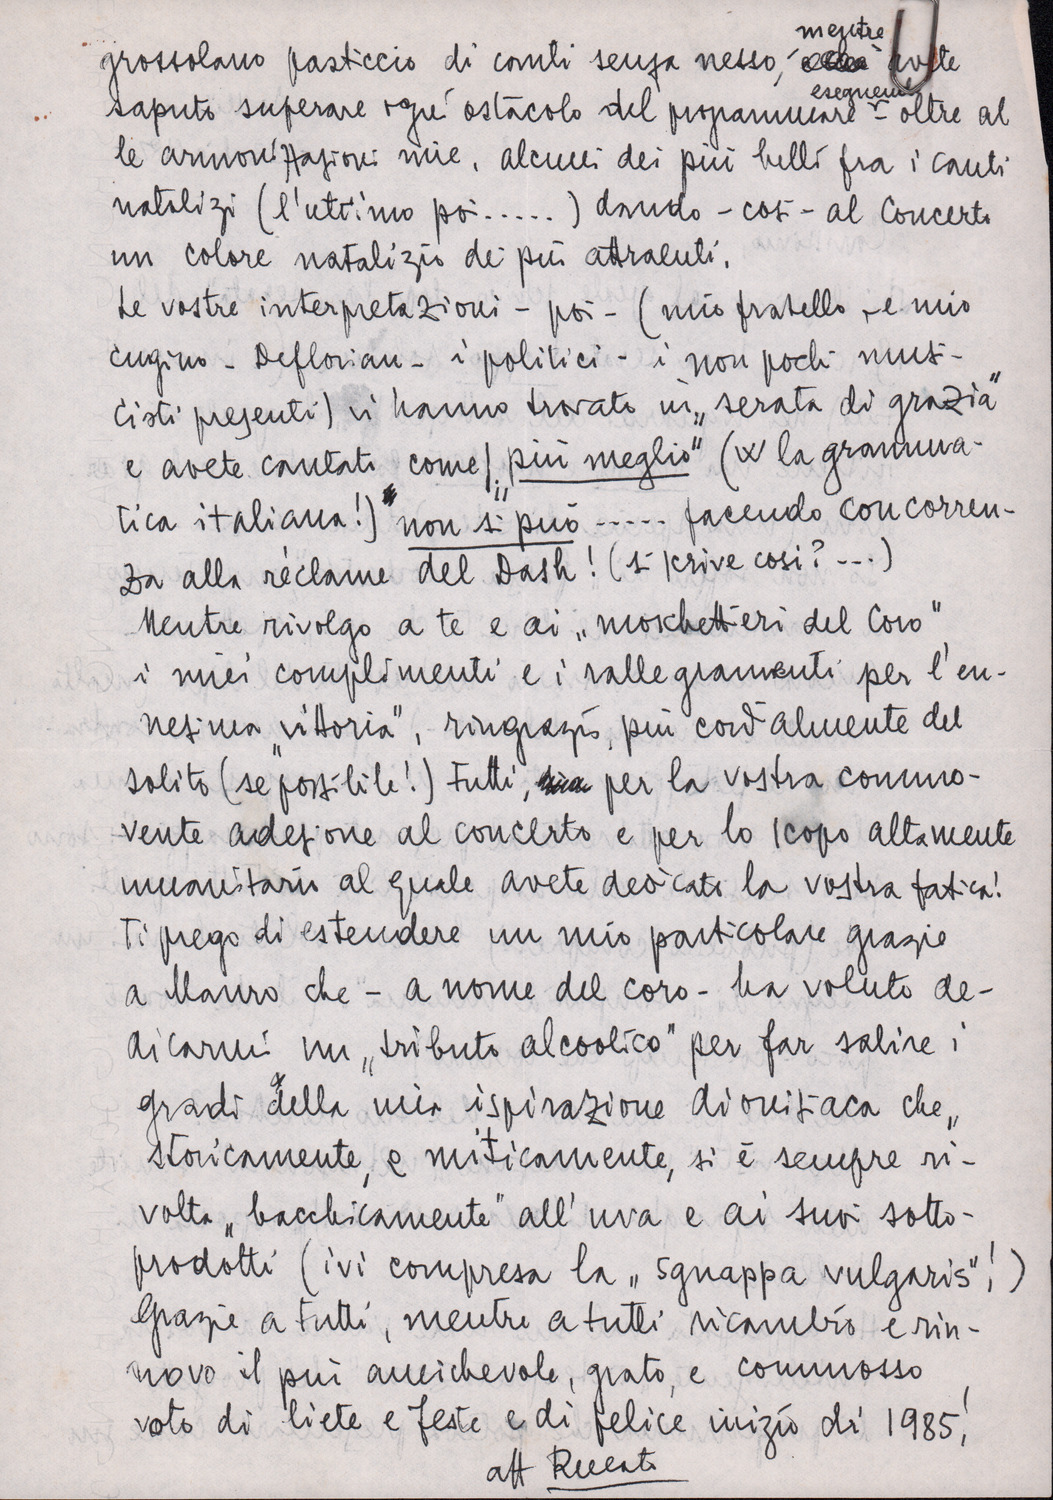 mentre
grossolano pasticcio di canti senza nesso, avete
eseguendo
saputo superare ogni ostacolo del programmare - oltre al
le armonizzazioni mie, alcuni dei più belli fra i canti
natalizi (l'ultimo poi.....) dando - così - al Concerto
un colore natalizio dei più attraenti.
Le vostre interpretazioni - poi - (mio fratello, - e mio
cugino - Deflorian - i politici - i non pochi musi-
cisti presenti) vi hanno trovato in „serata di grazia"
e avete cantato come „più meglio" (W la gramma-
tica italiana!) "non si può ..... facendo concorren-
za alla réclame del Dash! (si scrive così? ...)
Mentre rivolgo a te e ai „moschettieri del Coro"
i miei complimenti e i rallegramenti per l'en-
nesima „vittoria", ringrazio, più cordialmente del
solito (se possibile!) tutti, per la vostra commo-
vente adesione al concerto e per lo scopo altamente
umanitario al quale avete dedicato la vostra fatica!
Ti prego di estendere un mio particolare grazie
a Mauro che - a nome del coro - ha voluto de-
dicarmi un „tributo alcoolico" per far salire i
gradi della mia ispirazione dionisiaca che,
storicamente, e miticamente, si è sempre ri-
volta „bacchicamente" all'uva e ai suoi sotto-
prodotti (ivi compresa la „sgnappa vulgaris"!)
Grazie a tutti, mentre a tutti ricambio e rin-
novo il più amichevole, grato, e commosso
voto di liete e feste e di felice inizio di 1985!
aff Renato